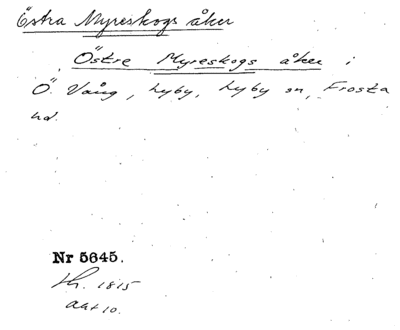 Östra Myreskogs åker
Östre Myreskogs åker i
Ö. Vång, Lyby, Lyby sn, Frosta
hd.
Nr 5645.
1815
akt 10.